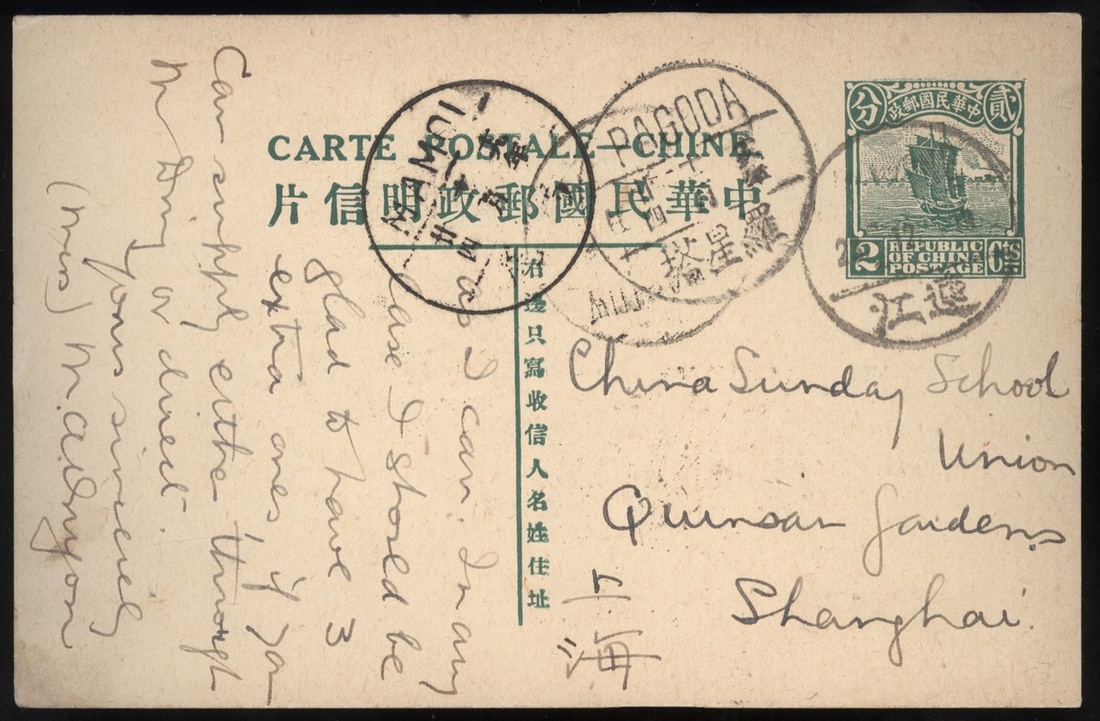 CARTE POSTALE—CHINE
中華民國郵政明信片
右邊只寫收信人名姓住址
中華民國郵政
貳
分
2
REPUBLIC
OF CHINA
POSTAGE
CTS
MAMOI
PAGODA
羅星塔
連江
China Sunday School
Union
Quinsan Gardens
Shanghai
上海
as I can. In any
case I should be
glad to have 3
extra ones, if you
Can supply either through
Mr Ding or direct.
Yours sincerely
(Miss) M.